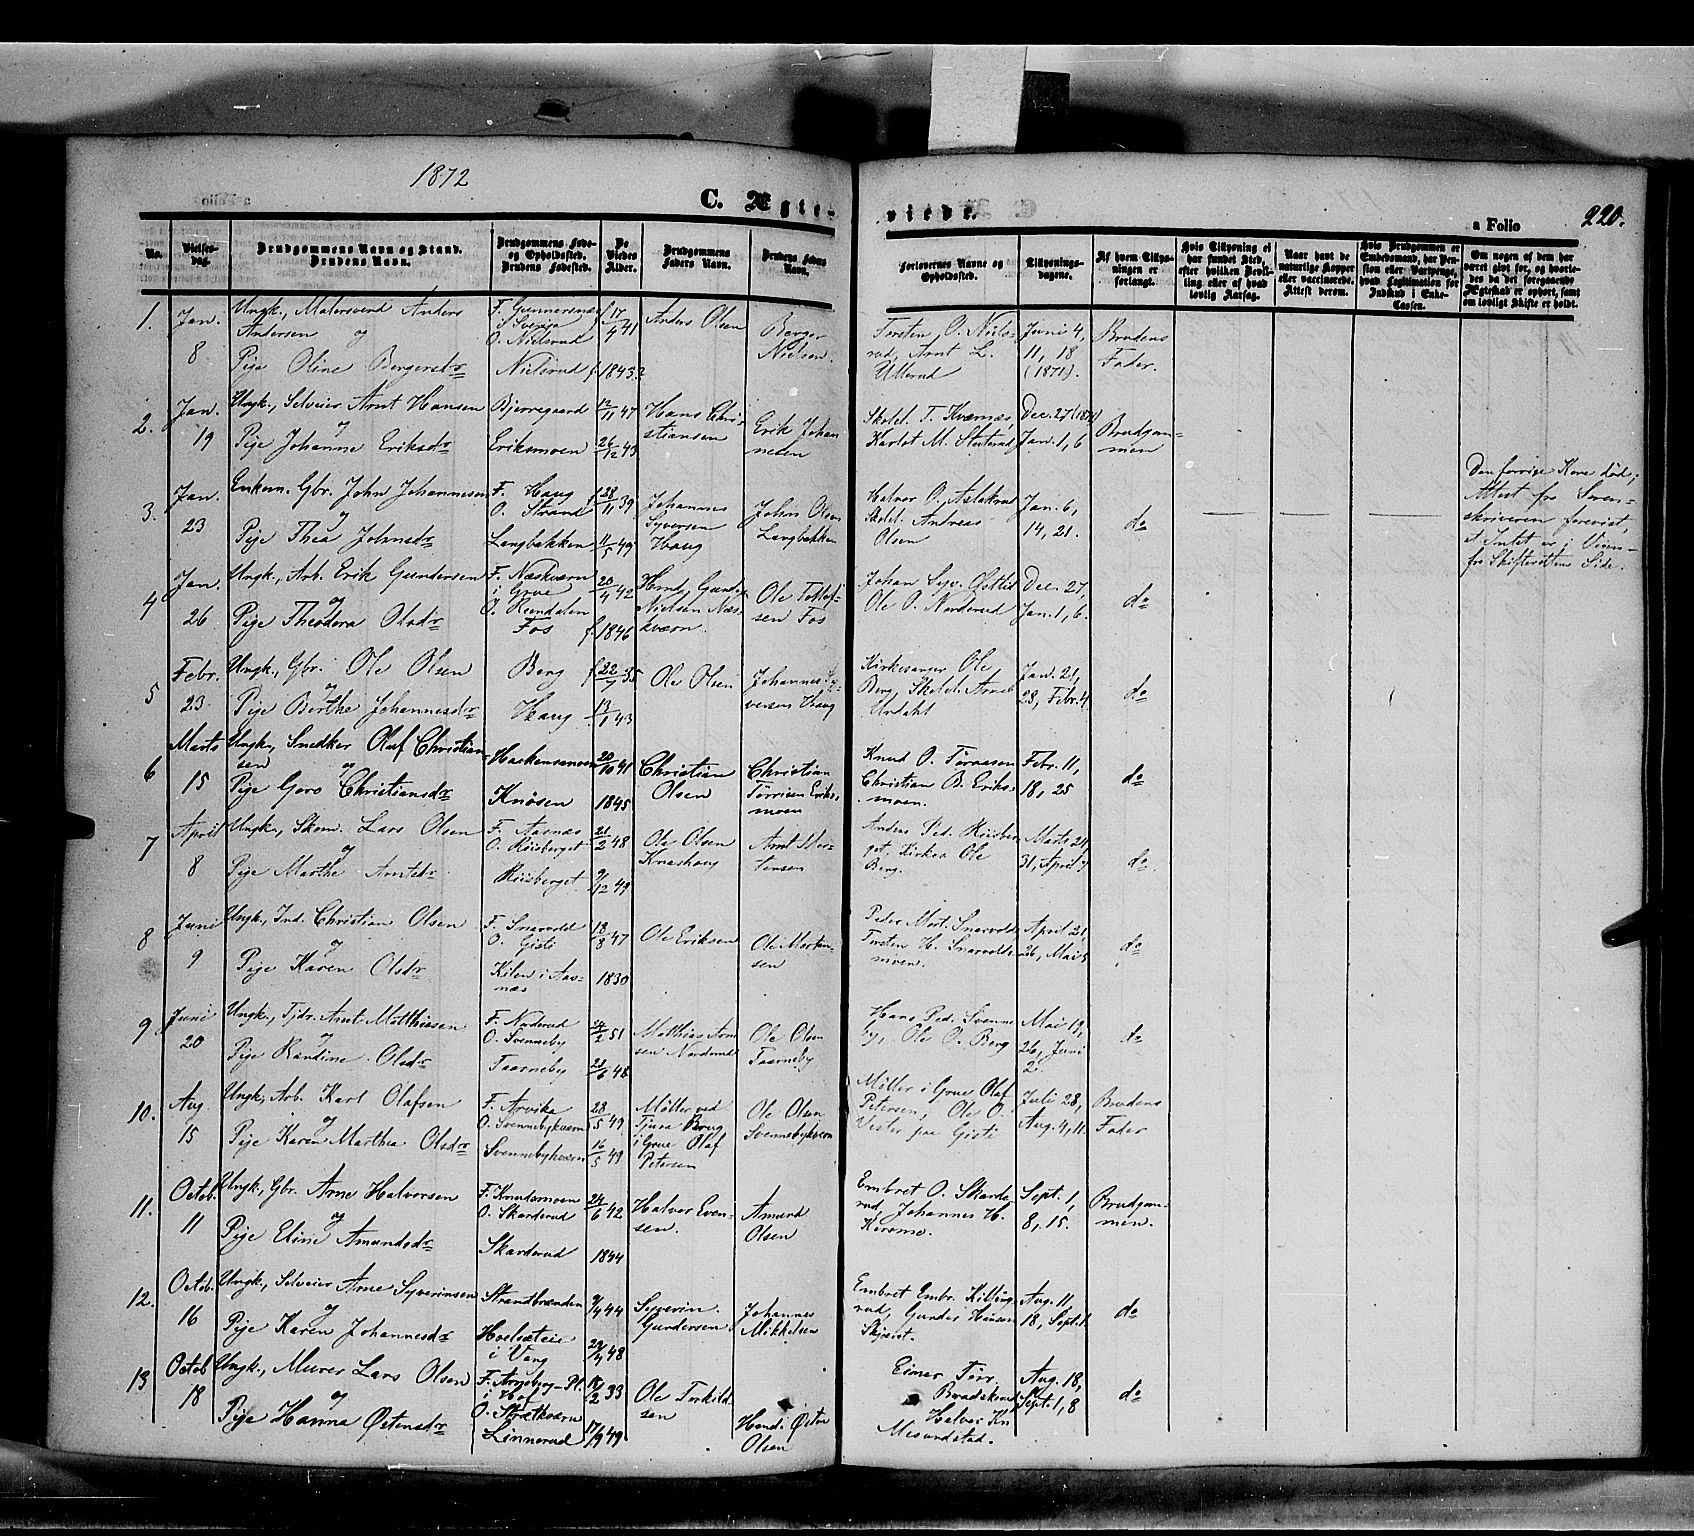 1872
C. Ægte-
vievde.
a Folio
220.
No.
Vielses-
dag.
Brudgommens Navn og Stand.
Brudens Navn.
Brudgommens Føde-
og Opholdssted.
Brudens Fødested.
De
Viedes
Alder.
Brudgommens
Faders Navn.
Brudens Faders
Navn.
Forlovernes Navne og
Opholdssted.
Tillysnings-
dagene.
Af hvem Tillys-
ningen er
forlangt.
Hvis Tillysning ei
har fundet Sted,
efter hvilken Bevil-
ling eller af hvad
lovlig Aarsag.
Naar havt de
naturlige Kopper
eller vaccinerede.
Attest derom.
Hvis Brudgommen er
Embedsmand, har Pen-
sion eller Vartpenge,
hvad Legitimation for
Indskud i Enke-
Cassen.
Om nogen af dem har
været gift før, og hvorle-
des da det foregaaende
Ægteskab er ophørt, samt
om lovligt Skifte er holdt.
1. Jan. 8
Ungk., Anders
Andersen og
Pige Oline Bergersdr
F. Gunnarsnæs
i Sverige
O. Nielsrud
Nielsrud
f. 1843?
Anders Olsen
Berger
Nielsen.
Torsten O. Niels-
rud, Arnt L.
Ullerud
Juni 4,
11, 18
(1871).
Brudens
Fader.
2. Jan. 19
Ungk., Selveier Arnt Hansen
og
Pige Johanne Eriksdr
Bjerregaard 12/11 47
Eriksmoen 26/12 43
Hans Chri-
stiansen
Erik Johan-
nesen
Skolel. T. Kværnæs,
Karlot M.
Dec. 27 (1871)
Jan. 1, 6
Brudgom-
men
3. Jan. 23
Enkem. Gbr. John Johannesen
og
Pige Thea Johnsdr
F. Haug
O. Strand
f 28/11 39
Langbakken 11/5 49
Johannes
Syversen
Haug
John Olsen
Langbakken
Halvor O. Aslakrud
Skolel. Andreas
Olsen
Jan. 6,
14, 21.
do
Den forrige Kone død;
Attest fra Soren-
skriveren foreviist,
at Intet er i Veien
fra Skifterettens Side.
4 Jan. 26
Ungk., Arb. Erik Gundersen
og
Pige Theodora Olsdr
F. Næskværn
i Grue
O. Rundalen
Fos
20/4 42
f. 1846
Gunder
Nielsen Næs-
kværn.
Ole Tollef-
sen Fos
Johan Syv. Østlid
Ole O. Norderud
Dec. 27,
Jan. 1, 6.
do
5 Febr. 23
Ungk., Gbr. Ole Olsen
og
Pige Berthe Johannesdr
Berg f 22/7 35
Haug 13/1 43
Ole Olsen
Johannes Sy-
versen Haug
Kirkesanger Ole
Berg, Skolel. Arne
Urdahl
Jan. 21,
28, Febr. 4
do
6 Marts 15
Ungk., Snedker Oluf Christian-
sen og
Pige Goro Christiansdr
Haakensmoen 20/10 41
Knøsen 1845
Christian
Olsen
Christian
Tørrisen Eriks-
moen
Knud O. Tøraasen
Christian B. Eriks-
moen.
Febr. 11,
18, 25
do
7 April 8
Ungk., Skom. Lars Olsen
og
Pige Marthe Arntsdr
F. Aasnæs
O. Riisberget
21/2 48
Riisberget 9/12 49
Ole Olsen
Knashaug
Arnt Mor-
tensen
Anders Ped. Riisber-
get, Kirkes. Ole
Berg.
Marts 24,
31, April 7
do.
8 Juni 9
Ungk., Ind. Christian Olsen
og
Pige Karen Olsdr
F. Snarvold
O. Gisti
18/8 47
Kilen i Aas-
næs
1830
Ole Eriksen
Ole Morten-
sen
Peder Mort. Snarvold
Torsten H. Snarvolds-
moen.
April 21,
26, Mai 5
do
9 Juni 20
Ungk., Tjdr. Arnt Matthiesen
og
Pige Randine Olsdr
F. Norderud
O. Svenneby
24/2 51
Taarneby 22/6 48
Matthies Arn-
sen Norderud
Ole Olsen
Taarneby
Hans Ped. Svenne-
by, Ole O. Berg
Mai 19,
26, Juni
2.
do
10. Aug. 15
Ungk., Arb. Karl Olafsen
og
Pige Karen Martha Olsdr
F. Arvika
O. Svennebykværn
28/5 49
Svennebykværn 16/5 49
Møller ved
Tjura Brug
i Grue Olaf
Petersen
Ole Olsen
Svennebykværn
Møller i Grue Olaf
Petersen, Ole O.
Vester paa Gisti
Juli 28,
Aug. 4, 11.
Brudens
Fader
11. Octob. 11
Ungk., Gbr. Arne Halvorsen
og
Pige Eline Amundsdr
F. Knudsmoen
O. Skarderud
24/6 42
Skarderud 1844
Halvor Even-
sen.
Amund
Olsen
Embret O. Skarde-
rud, Johannes H.
Kjeramo.
Sept. 1,
8, 15.
Brudgom-
men.
12. Octob. 16
Ungk., Selveier Arne Syverinsen
og
Pige Karen Johannesdr
Strandbrænden 9/4 44
Hoelsæteie
i Vang
29/4 48
Syverin
Gundersen
Johannes
Mikkelsen
Embret Embr. Killing-
rud, Gunder Hansen
Skjæret.
Aug. 11,
18, Sept. 1.
do
13 Octob. 18
Ungk., Murer Lars Olsen
og
Pige Hanna Østensdr
F. Arneberg-Pl.
i Hof
O. Strætkværn
18/2 33
Linnerud 17/9 49
Ole Torkild-
sen
Hmd. Østen
Olsen
Einar Tørr.
Bradskerud
Halvor Kn.
Mesundstad.
Aug. 18,
Sept. 1, 8
do